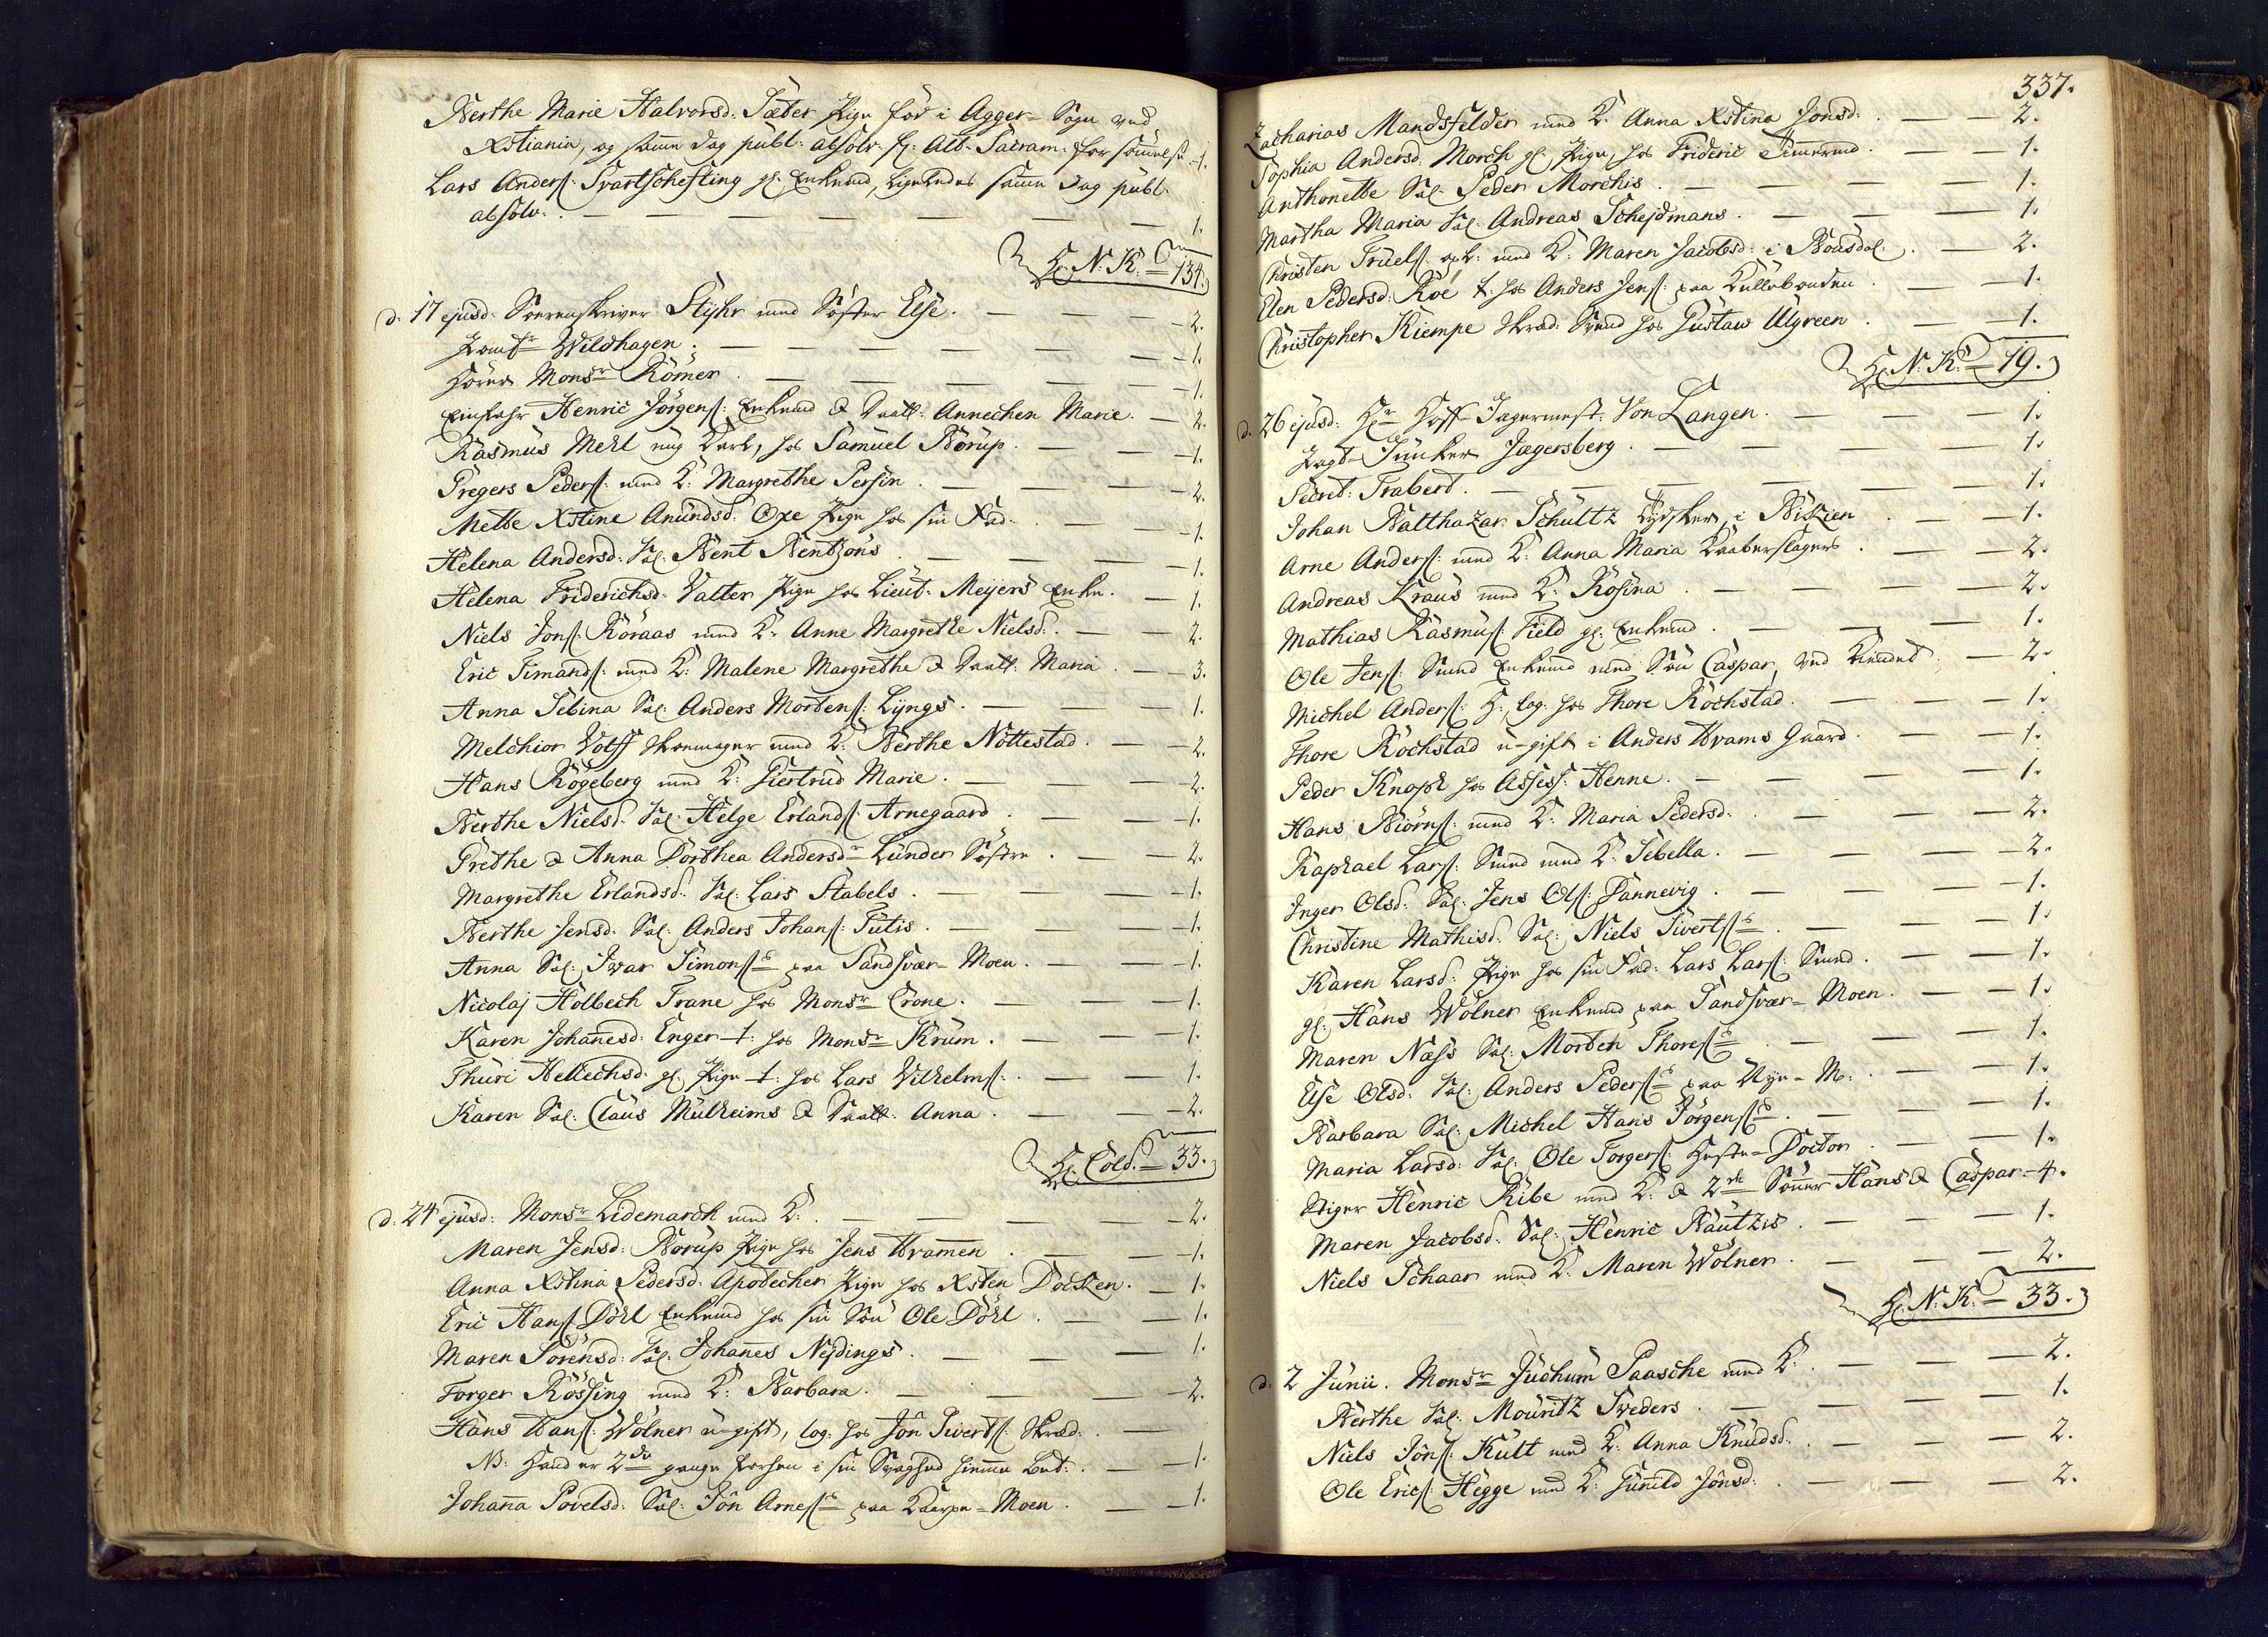 Berthe Marie Halvorsd: Sæter Pige född i Agger-Sogn ved
Xstiania, og samme Dag publ: absolv: f: Alt: Sacram: forsömmelse 1.
Lars Anders: Svartschefting gl: Enkemd, ligeledes samme Dag publ:
absolv: 1.
H: N: K: = 134.
d. 17 ejusd: Sorenskriver Styhr med Söster Else. 2.
Jomfr Wildhagen. 1.
Hörer Monsr Römer. 1.
Henric Jörgens: Enkemd & Daatt: Annechen Marie. 2.
Rasmus Mehl ung Karl, hos Samuel Borup. 1.
Gregers Peders: med K: Margrethe Persin. 2.
Mette Xstine Anundsd: Oxe Pige hos sin Fad: 1.
Helena Andersd: Sal: Bent Bentzons. 1.
Helena Friderichsd: Valter Pige hos Lieut: Meyers Enke. 1.
Niels Jons: Röraas med K: Anne Margrethe Nielsd: 2.
Eric Simands: med K: Malene Margrethe & Daatt: Maria. 3.
Anna Sebina Sal: Anders Mortens: Lyngs. 1.
Melchior Wolff Skoemager med K: Berthe Nottestad. 2.
Hans Rögeberg med K: Giertrud Marie. 2.
Berthe Nielsd: Sal: Helge Erlands: Arnegaard. 1.
Grethe & Anna Dorthea Andersdr Lunder Söstre. 2.
Margrethe Erlandsd: Sal: Lars Stabels. 1.
Berthe Jensd: Sal: Anders Johans: Tutis. 1.
Anna Sal: Iwar Simons: paa Sandsvær-Moen. 1.
Nicolaj Holbech Trane hos Monsr Crone. 1.
Karen Johannesd: Enger t: hos Monsr Krum. 1.
Thuri Hellechsd: gl: Pige t: hos Lars Vilhelms: 1.
Karen Sal: Claus Mulheims & Daatt: Anna. 2.
H: Cold: = 33.
d. 24 ejusd: Monsr Lidemarck med K: 2.
Maren Jensd: Borup Pige hos Jens Bramen. 1.
Anna Xstina Pedersd: Apotecher Pige hos Xsten Docken. 1.
Eric Hans: Döhl Enkemd hos sin Sön Ole Döhl. 1.
Maren Sörensd: Sal: Johannes Nydings. 1.
Torger Rössing med K: Barbara. 2.
Hans Hans: Wölner u-gift, log: hos Jon Siverts: Skræd:
NB: Hand er 2de gange forhen i sin Svaghed hiemme bet: 1.
Johanna Povelsd: Sal: Jon Arnes: paa Moen. 1.
337.
Zacharias Mandsfelder med K: Anna Xstina Jonsd: 2.
Sophia Andersd: Morch gl: Pige, hos Frideric Timermd. 1.
Anthonette Sal: Peder Morchis. 1.
Martha Maria Sal: Andreas Schejdmans. 1.
Christen Truels: med K: Maren Jacobsd: i 2.
Elen Pedersd: Roe t: hos Anders Jens: paa 1.
Christopher Kiempe Skræd: Svend hos Gustaw Ulgreen. 1.
H: N: K: = 19.
d. 26 ejusd: Hr Hoff-Jægermest: Von Langen. 1.
Jagt-Junker Jægersberg. 1.
Secret: Trabert. 1.
Johan Balthazar Schultz Tydsker, i 1.
Arne Anders: med K: Anna Maria Kaaberslagers. 2.
Andreas Kraus med K: Rosina. 2.
Mathias Rasmus: Field gl: Enkemd. 1.
Ole Jens: Smed Enkemd med Sön Caspar, ved 2.
Michel Anders: H: log: hos Thore Rochstad. 1.
Thore Rochstad u-gift i Anders Brams Gaard. 1.
Peder Knoph hos Assess: Henne. 1.
Hans Biörns: med K: Maria Pedersd: 2.
Raphael Lars: Smed med K: Sibella. 2.
Inger Olsd: Sal: Jens Ols: Dannevig. 1.
Christine Mathisd: Sal: Niels Siverts: 1.
Karen Larsd: Pige hos sin Fad: Lars Lars: Smed. 1.
gl: Hans Wölner Enkemd paa Sandsvær-Moen. 1.
Maren Næss Sal: Morten Thores: 1.
Else Olsd: Sal: Anders Peders: paa Nye-M: 1.
Barbara Sal: Michel Hans Jörgens: 1.
Maria Larsd: Sal: Ole Torgers: Heste-Doctor 1.
Stiger Henric Ribe med K: & 2de Sönner Hans & Caspar 4.
Maren Jacobsd: Sal: Henric Bautzis. 1.
Niels Schaar med K: Maren Wölner. 2.
H: N: K: = 33.
d. 2 Junii. Monsr Juchum Paasche med K: 2.
Berthe Sal: Mouritz Sweders. 1.
Niels Jons: Kult med K: Anna Knudsd: 2.
Ole Erics: Hegge med K: Gunild Jonsd: 2.